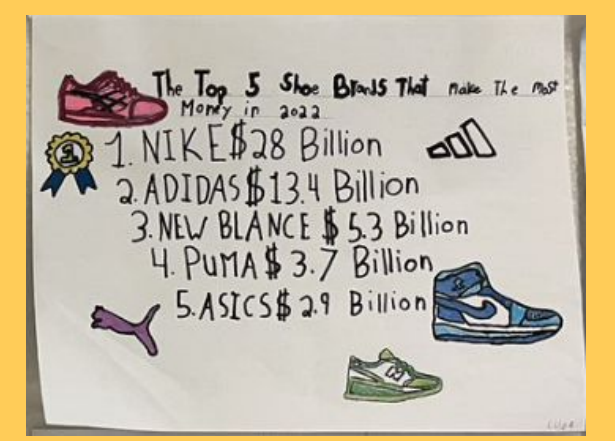 The Top 5 Shoe Brands That Make The Most
Money in 2022
1
1. NIKE $28 Billion
2. ADIDAS $13.4 Billion
3. NEW BLANCE $ 5.3 Billion
4. PUMA $ 3.7 Billion
5. ASICS $ 2.9 Billion